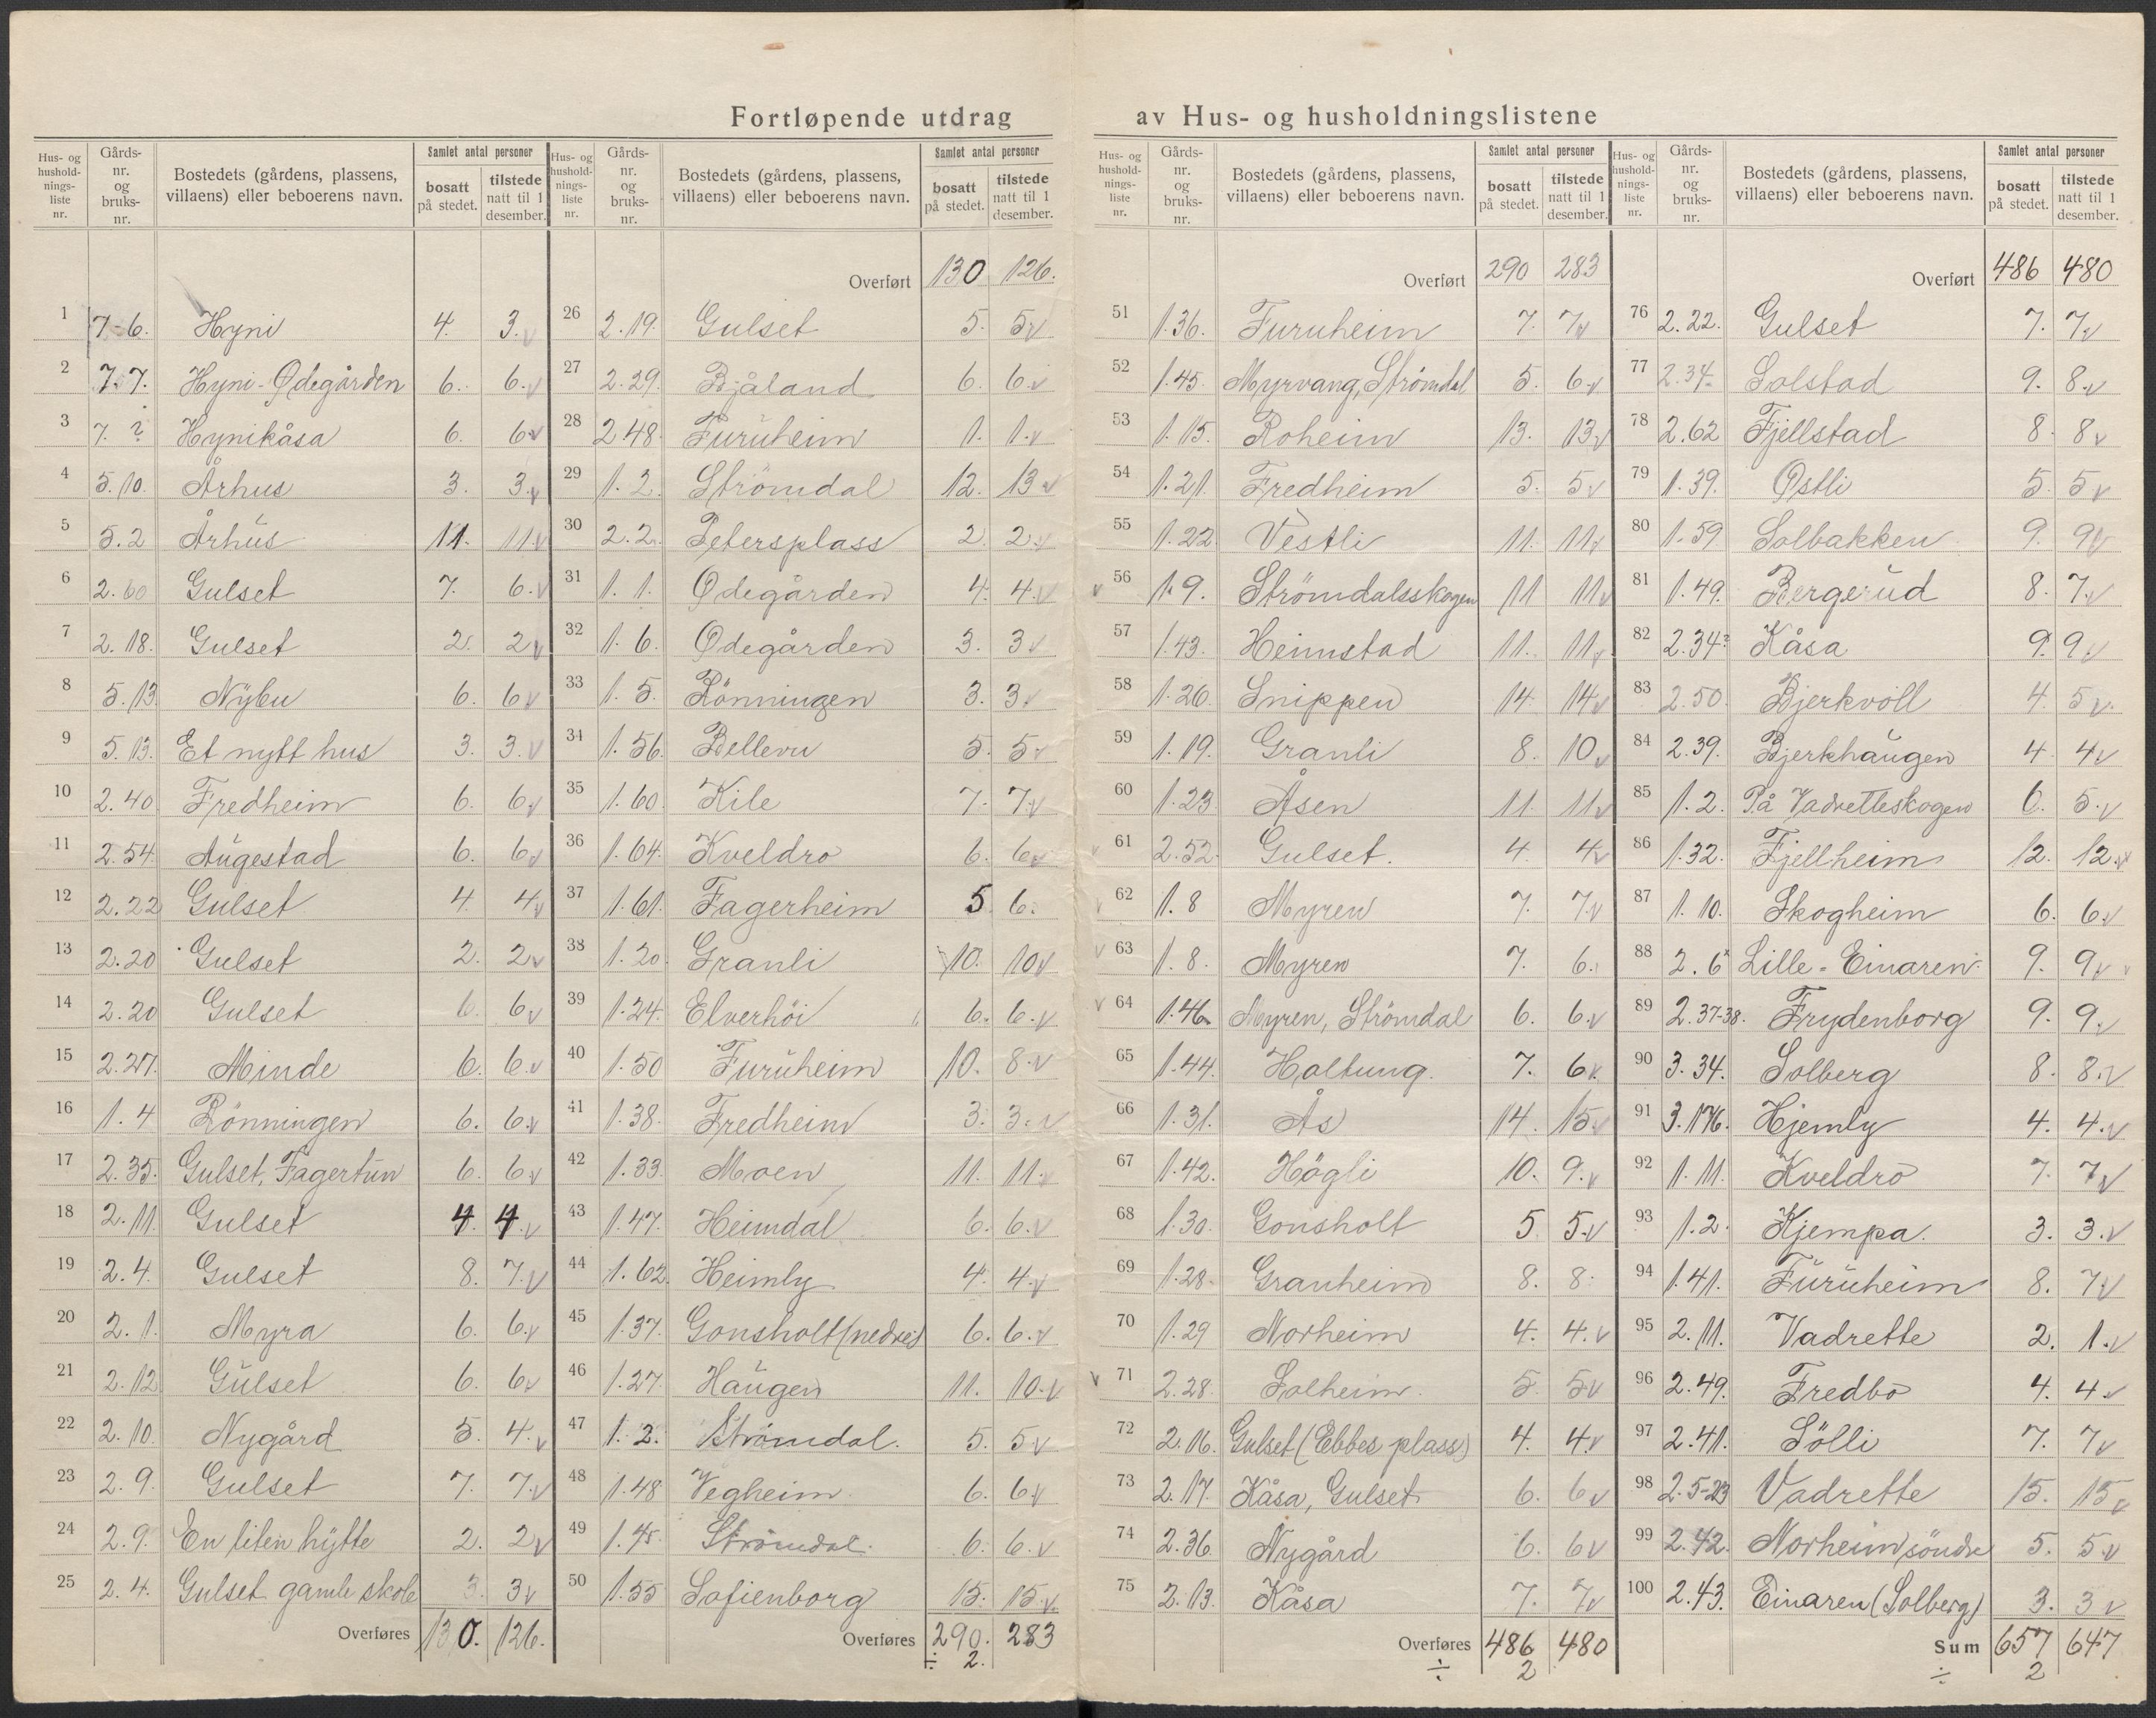 Fortløpende utdrag av Hus- og husholdningslistene
Hus- og hushold-nings-liste nr. | Gårds-nr. og bruks-nr. | Bostedets (gårdens, plassens, villaens) eller beboerens navn. | Samlet antal personer | bosatt på stedet. | tilstede natt til 1 desember.
1 7-6. Hyni 4. 3. v
2 7.7. Hyni-Ødegården 6. 6. v
3 7. ? Hynikåsa 6. 6 v
4 5.10. Århus 3. 3. v
5 5.2 Århus 11. 11. v
6 2.60 Gulset 7. 6. v
7 2.18. Gulset 2. 2 v
8 5.13 Nybu 6. 6 v
9 5.13. Et nytt hus 3. 3. v
10 2.40 Fredheim 6. 6. v
11 2.54. Augestad 6. 6 v
12 2.22 Gulset 4. 4 v
13 2.20 Gulset 2. 2 v
14 2.20 Gulset 6. 6 v
15 2.27. Minde 6. 6. v
16 1.4 Rönningen 6. 6. v
17 2.35. Gulset, Fagertun 6. 6. v
18 2.11. Gulset 4. 4. v
19 2.4. Gulset 8. 7. v
20 2.1. Myra 6. 6. v
21 2.12 Gulset 6. 6 v
22 2.10. Nygård 5. 4. v
23 2.9. Gulset 7. 7. v
24 2.9. En liten hytte 2. 2 v
25 2.4. Gulset gamle skole 3. 3 v
Overføres 130. 126.
Hus- og hushold-nings-liste nr. | Gårds-nr. og bruks-nr. | Bostedets (gårdens, plassens, villaens) eller beboerens navn. | Samlet antal personer | bosatt på stedet. | tilstede natt til 1 desember.
Overført 130 126.
26 2.19. Gulset 5. 5 v
27 2.29. Bjåland 6. 6. v
28 2 48. Furuheim 1. 1. v
29 1.2. Strömdal 12. 13 v
30 2.2. Petersplass 2. 2. v
31 1.1. Ødegården 4. 4. v
32 1.6. Ødegården 3. 3 v
33 1.5. Rönningen 3. 3. v
34 1.56. Bellevu 5. 5 v
35 1.60. Kile 7. 7. v
36 1.64. Kveldro 6. 6 v
37 1.61. Fagerheim 5 6.
38 1.20. Granli 10. 10 v
39 1.24. Elverhöi 6. 6. v
40 1.50 Furuheim 10. 8. v
41 1.38. Fredheim 3. 3. v
42 1.33. Moen 11. 11. v
43 1.47. Heimdal 6. 6. v
44 1.62. Heimly 4. 4. v
45 1.37. Gonsholt (nedre) 6. 6. v
46 1.27. Haugen 11. 10. v
47 1.2. Strömdal. 5. 5 v
48 1.48 Vegheim. 6. 6. v
49 1.45. Strömdal. 6. 6. v
50 1.55 Sofienborg 15. 15. v.
Overføres 290. 283
÷ 2.
Hus- og hushold-nings-liste nr. | Gårds-nr. og bruks-nr. | Bostedets (gårdens, plassens, villaens) eller beboerens navn. | Samlet antal personer | bosatt på stedet. | tilstede natt til 1 desember.
Overført 290 283
51 1.36. Furuheim 7. 7 v
52 1.45. Myrvang, Strömdal 5. 6. v
53 1.15. Roheim 13. 13. v
54 1.21. Fredheim 5. 5 v
55 1.22 Vestli 11. 11. v
v 56 1.9. Strömdalsskogen 11 11 v
57 1.43. Heimstad 11. 11. v
58 1.26. Snippen 14. 14 v
59 1.19. Granli 8. 10 v
60 1.23. Åsen 11. 11 v
v 61 2.52. Gulset. 4. 4 v
v 62 1.8 Myren 7. 7. v
v 63 1.8. Myren 7. 6.
v 64 1.46. Myren, Strömdal 6. 6. v
65 1.44. Holtung. 7. 6 v.
66 1.31. Ås 14. 15 v
67 1.42. Högli 10. 9. v
68 1.30. Gonsholt 5 5. v
69 1.28. Granheim 8. 8.
70 1.29 Norheim 4. 4. v
v 71 2.28. Solheim. 5. 5 v
72 2.16. Gulset (Ebbes plass) 4. 4 v
73 2.17. Kåsa, Gulset 6. 6 v
74 2.36. Nygård 6. 6 v
75 2.13. Kåsa 7. 7 v
Overføres 486 480
÷ 2
Hus- og hushold-nings-liste nr. | Gårds-nr. og bruks-nr. | Bostedets (gårdens, plassens, villaens) eller beboerens navn. | Samlet antal personer | bosatt på stedet. | tilstede natt til 1 desember.
Overført 486 480
76 2.22. Gulset 7. 7. v
77 2.34. Solstad 9. 8. v
78 2.62 Fjellstad 8. 8 v
79 1.39. Østli 5. 5 v
80 1.59 Solbakken 9. 9 v
81 1.49. Bergerud 8. 7. v
82 2.34? Kåsa 9. 9 v
83 2.50. Bjerkvoll 4. 5 v.
84 2.39. Bjerkhaugen 4. 4 v
85 1.2. På Vadretteskogen 6. 5. v
86 1.32. Fjellheim 12. 12. v
87 1.10. Skogheim 6. 6. v
88 2.6 Lille-Einaren 9. 9 v
89 2.37-38. Frydenborg 9. 9. v
90 3.34. Solberg 8. 8. v
91 3.176. Hjemly 4. 4. v
92 1.11. Kveldro 7. 7 v
93 1.2. Kjempa. 3. 3. v
94 1.41. Furuheim 8. 7 v
95 2.11. Vadrette 2. 1. v
96 2.49. Fredbo 4. 4. v
97 2.41. Sölli 7. 7 v
98 2.5-23 Vadrette 15. 15 v
99 2.42. Norheim söndre 5. 5 v
100 2.43. Einaren (Solberg) 3. 3 v
Sum 657 647
÷ 2